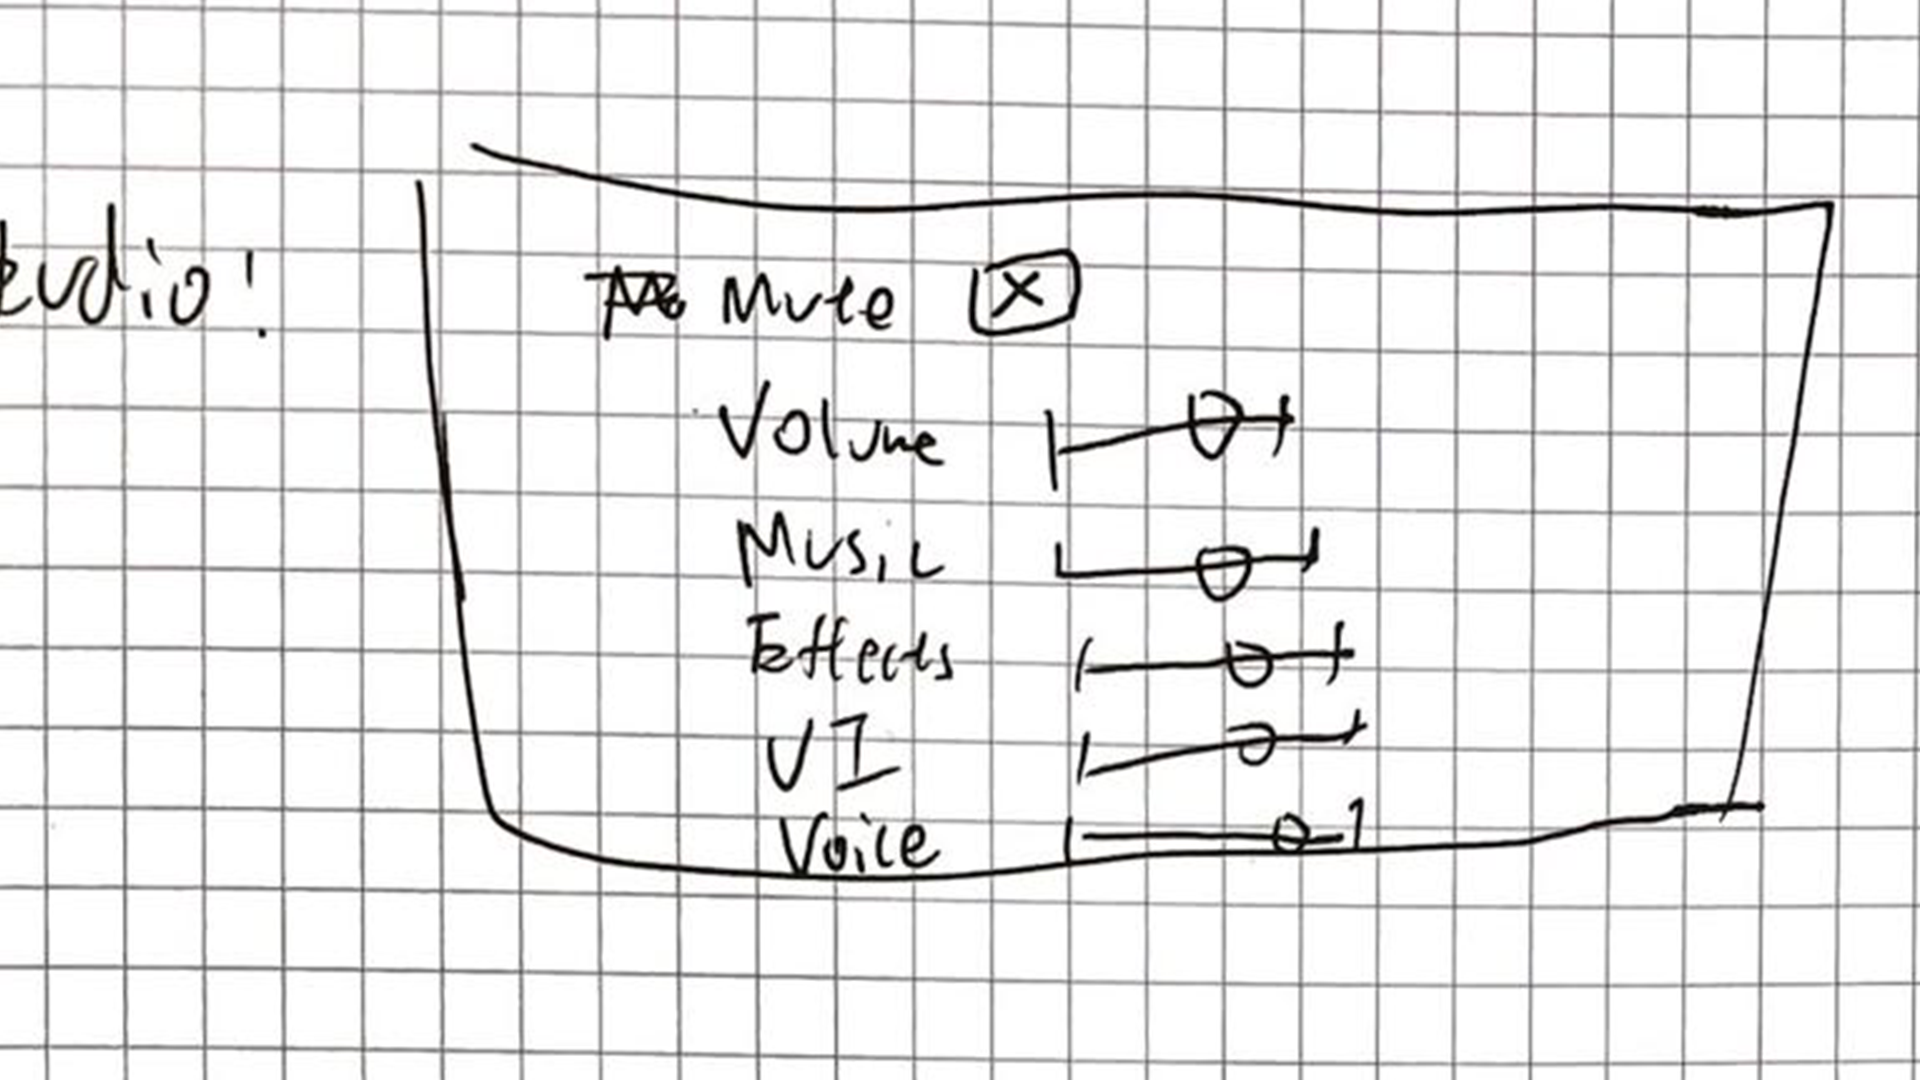 Mute X
Volume
Music
Effects
UI
Voice